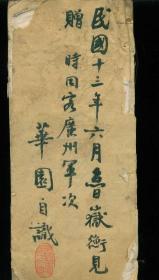 民國十三年六月魯嶽衡見
贈 時同客廣州軍次
華園自識